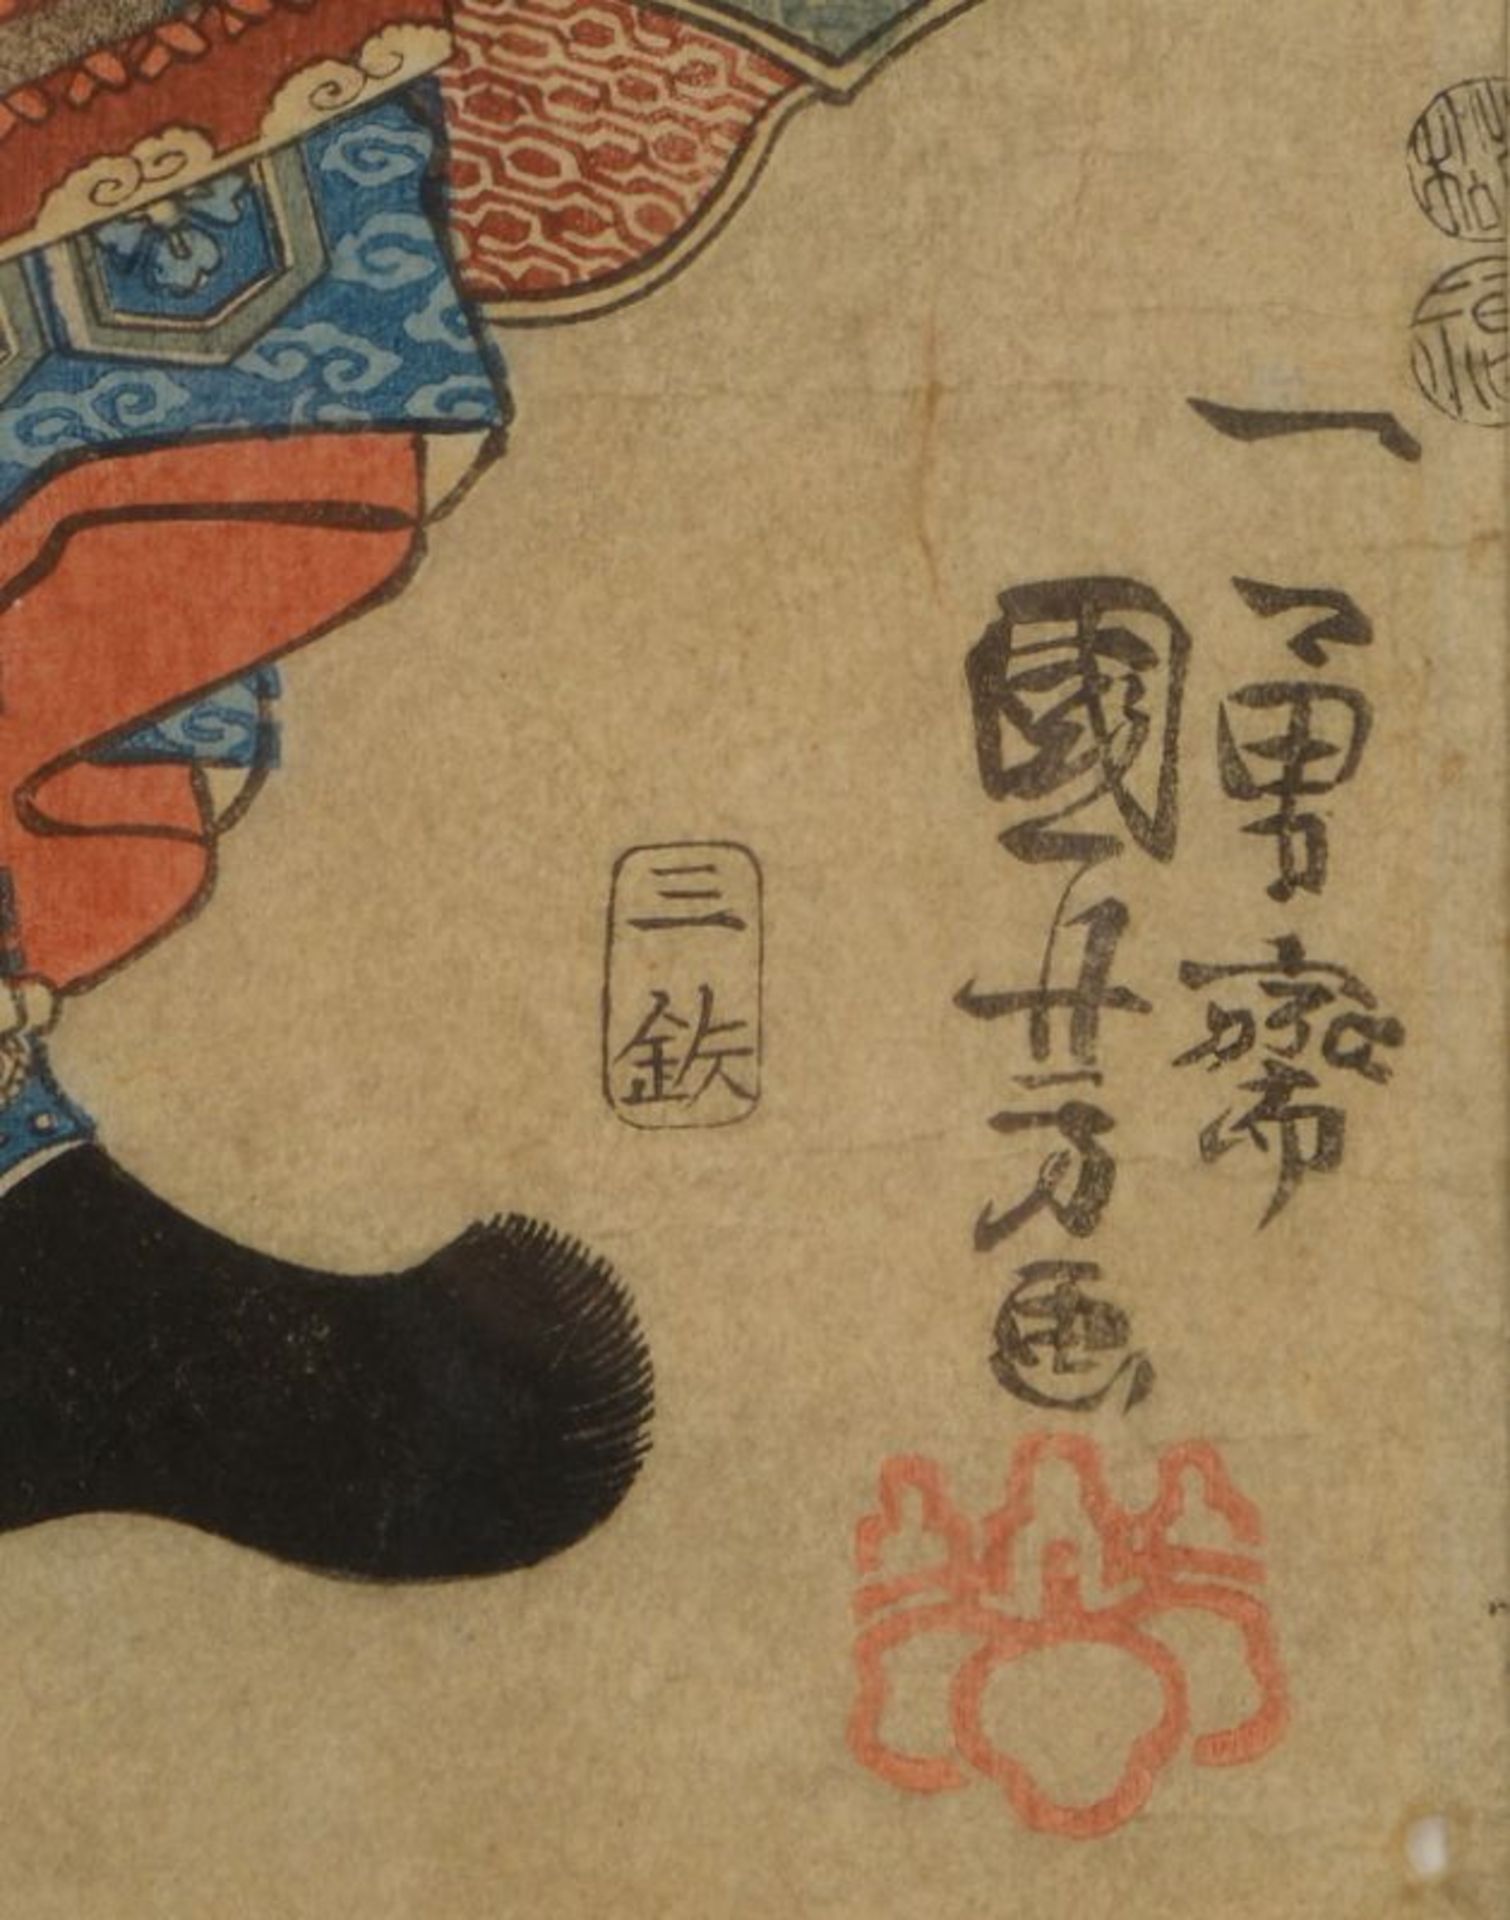 一勇齋
國芳画
三鉄